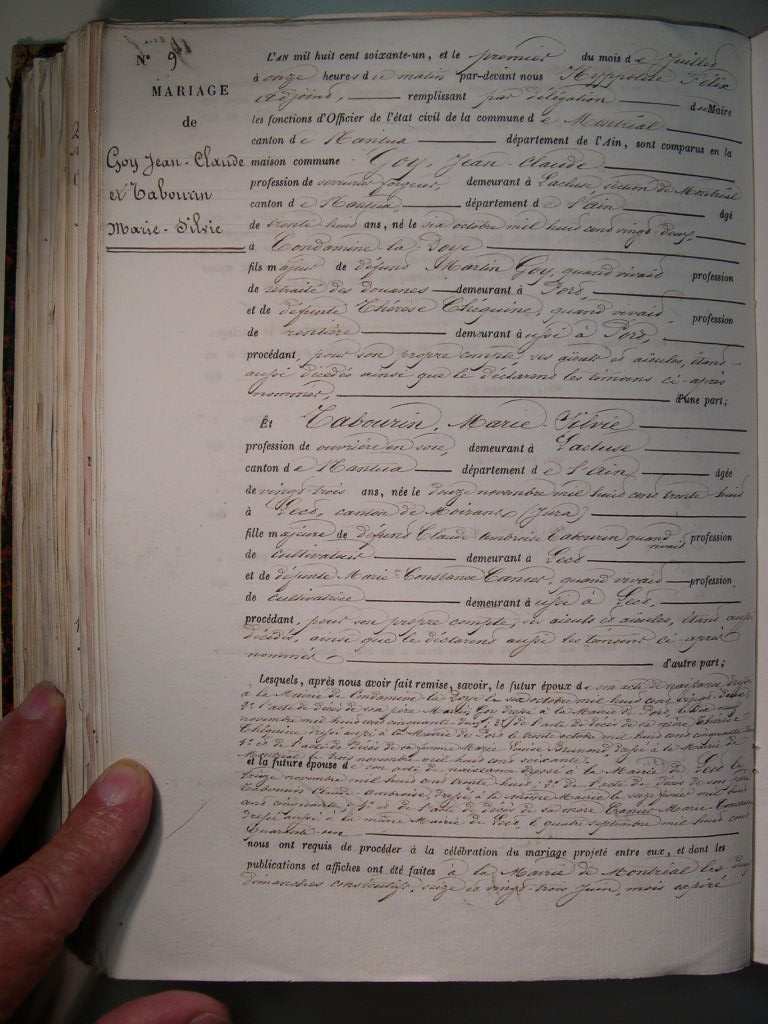 N° 9
MARIAGE
de
Goy Jean-Claude
et Tabourin
Marie-Silvie
L'AN mil huit cent soixante-un, et le premier du mois de Juillet
à onze heures de matin par-devant nous Hyppolite Félix
Adjoint, remplissant par délégation du Maire
les fonctions d'Officier de l'état civil de la commune de Montréal
canton de Nantua département de l'Ain, sont comparus en la
maison commune Goy, Jean-Claude
profession de serrurier forgeur, demeurant à Lacluse, section de Montréal
canton de Nantua département de l'ain âgé
de trente huit ans, né le six octobre mil huit cent vingt deux,
à Condamine la Doye
fils majeur de défunt Martin Goy, quand vivait profession
de retraité des douanes demeurant à Port,
et de défunte Thérèse Chéguine, quand vivait profession
de rentière demeurant aussi à Port,
procédant, pour son propre compte, ses aïeuls et aïeules, étant
aussi décédés ainsi que le déclarent les témoins ci-après
nommés, d'une part;
Et Tabourin, Marie-Silvie
profession de ouvrière en soie, demeurant à Lacluse
canton de Nantua département de l'Ain âgée
de vingt trois ans, née le douze novembre mil huit cent trente huit
à Lect, canton de Moirans (Jura)
fille majeure de défunt Claude Ambroise Tabourin quand vivait profession
de cultivateur demeurant à Lect
et de défunte Marie-Constance quand vivait profession
de cultivatrice demeurant aussi à Lect,
procédant, pour son propre compte, ses aïeuls et aïeules, étant aussi
décédés, ainsi que le déclarent aussi les témoins ci-après
nommés, d'autre part;
Lesquels, après nous avoir fait remise, savoir, le futur époux de son acte de naissance dressé
à la Mairie de Condamine la Doye le six octobre mil huit cent vingt deux,
2° l'acte de décès de son père Martin Goy dressé à la Mairie de Port, le dix neuf
novembre mil huit cent cinquante 3° de l'acte de décès de sa mère Thérèse
Chéguine, dressé aussi à la Mairie de Port le trente octobre mil huit cent cinquante
4° et de l'acte de décès de sa femme Marie dressé à la Mairie de
Montréal le trois novembre mil huit cent soixante.
et la future épouse de son acte de naissance dressé à la Mairie de Lect le
treize novembre mil huit cent trente huit, 2° de l'acte de décès de son père
Tabourin Claude-Ambroise, dressé à la même Mairie le mil huit
cent cinquante 3° et de l'acte de décès de sa mère Marie-Constance
dressé aussi à la même Mairie de Lect, le quatre septembre mil huit cent
quarante-un
nous ont requis de procéder à la célébration du mariage projeté entre eux, et dont les
publications et affiches ont été faites à la Mairie de Montréal les deux
dimanches consécutifs, seize et vingt-trois Juin, mois expiré